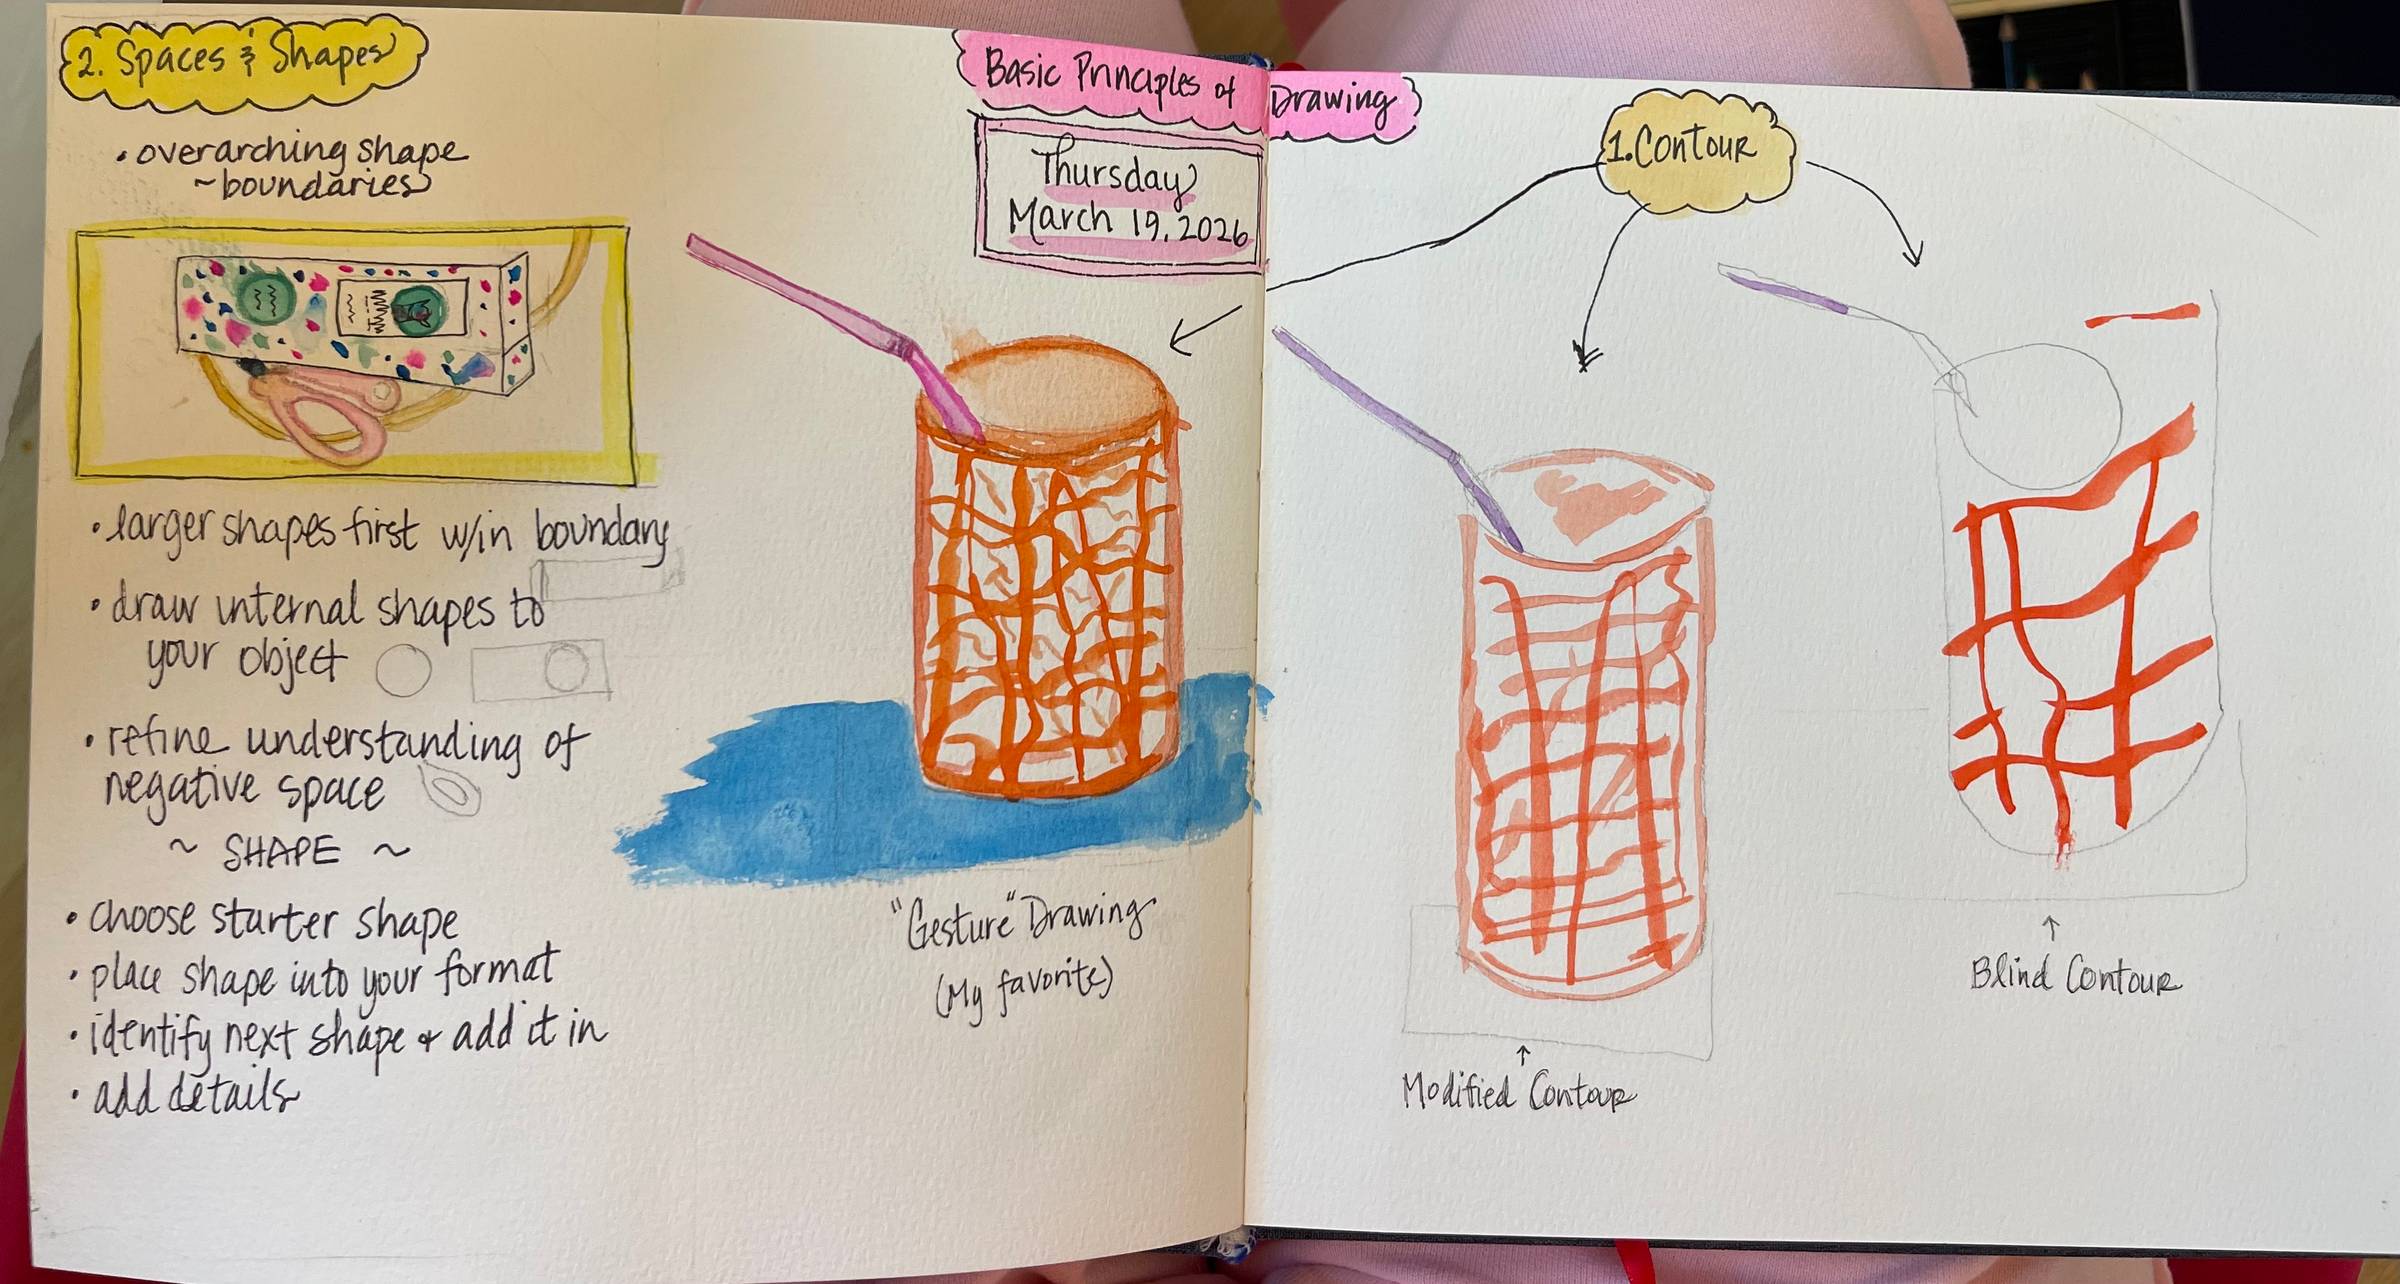 Basic Principles of Drawing
Thursday
March 19, 2026
1. Contour
"Gesture" Drawing
(My favorite)
Modified Contour
Blind Contour
2. Spaces & Shapes
• overarching shape
~boundaries
• larger shapes first w/in boundary
• draw internal shapes to
your object
• refine understanding of
negative space
~ SHAPE ~
• choose starter shape
• place shape into your format
• identify next shape & add it in
• add details